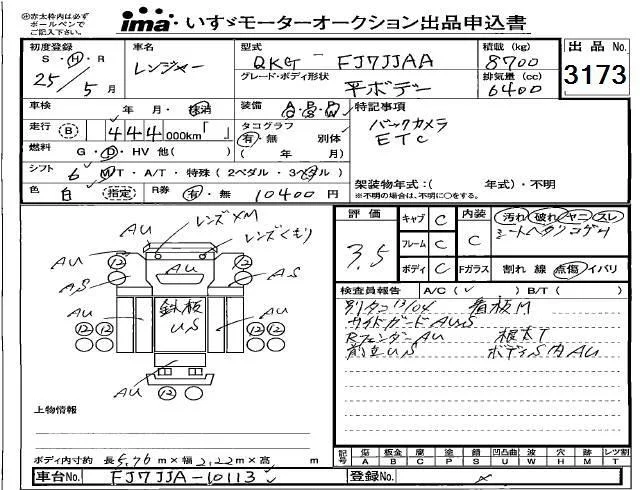 ㊟赤太枠内は必ず
ボールペンで
ご記入下さい。
ima いすゞモーターオークション出品申込書
初度登録 S・H・R 25/5月
車名 レンジャー
型式 QKG-FJ7JJAA
グレード・ボディ形状 平ボデー
積載(kg) 8700
排気量(cc) 6400
出品No. 3173
車検 年 月・抹消
装備 A・B・P
走行 B 444,000km「 」
タコグラフ 有・無 別体 ( 年 月)
燃料 G・D・HV 他( )
シフト 6 MT・A/T・特殊(2ペダル・3ペダル)
色 白 指定
R券 有・無 10400円
特記事項
バックカメラ
ETC
架装物年式:( 年式)・不明
※不明の場合は、不明に○をする。
レンズ×M
AU レンズくもり
AU AU
12 AU 12
AS AS
AU 鉄板 US AU
12 12 12
AU
AU
12
上物情報
ボディ内寸約 長5.76m×幅2.22m×高 m
評価 3.5
キャブ C
フレーム C
ボディ C
内装 C
汚れ 破れ ヤニ スレ
シートヘタリコゲウ
Fガラス 割れ 線 点傷 イバリ
検査員報告 A/C(✓) B/T( )
別タコ13/04 看板M
サイドガードAUS
RフェンダーAU 根太T
前立US ボディS内AU
記号 傷A 板金B 腐C 塗P 錆S 凹凸曲U 波W 穴H 跡M レツ割T
車台No. FJ7JJA-10113
登録No. ×